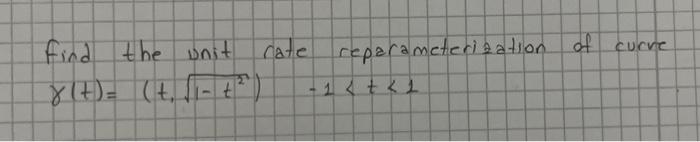 find the unit rate reparameterization of curve
γ(t)= (t, √1-t²) -1 < t < 1